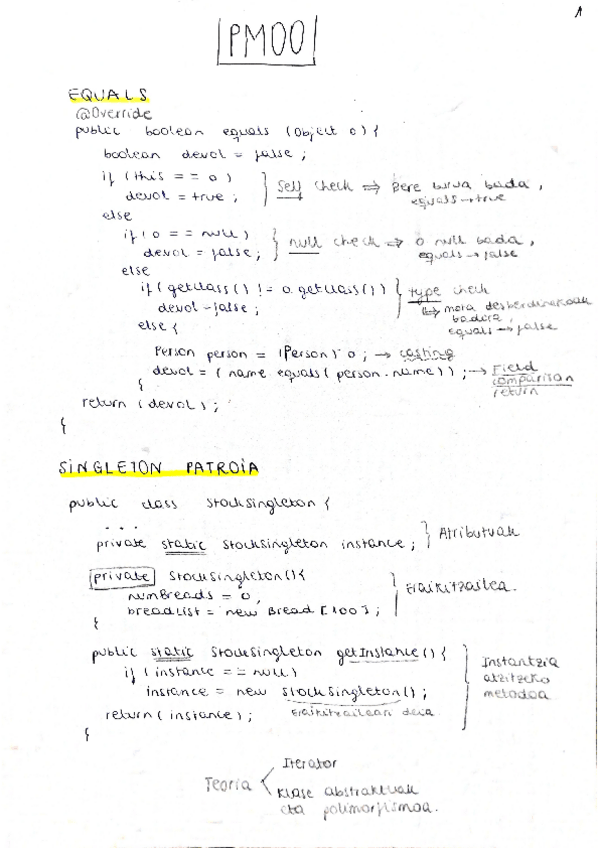 1
PMOO
EQUALS
@Override
public boolean equals (Object o) {
boolean devol = false ;
if (this == o) } Self check ⇒ Bere burua bada ,
devol = true ; equals → true
else
if ( o == null) } null check ⇒ o null bada ,
devol = false ; equals → false
else
if ( getClass () != o. getClass ()) } type check
devol = false ; ↳ mota desberdinakoak
badira,
else { equals → false
Person person = (Person) o ; → casting
devol = ( name. equals ( person. name)) ; → Field
} comparison
return
return (devol) ;
}
SINGLETON PATROIA
public class StockSingleton {
. . .
private static StockSingleton instance ; } Atributuak
private StockSingleton () {
numBreads = 0; } Eraikitzailea.
breadList = new Bread [100] ;
}
public static StockSingleton getInstance () { Instantzia
if ( instance == null) atzitzeko
instance = new StockSingleton() ; metodoa
return ( instance) ; Eraikitzaileari deia
}
Iterator
Teoria
Klase abstraktuak
eta polimorfismoa.